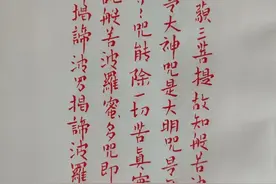 藐三菩提故知般若波
是大神咒是大明咒是
咒能除一切苦真實
說般若波羅蜜多咒即
揭諦波罗揭諦波羅